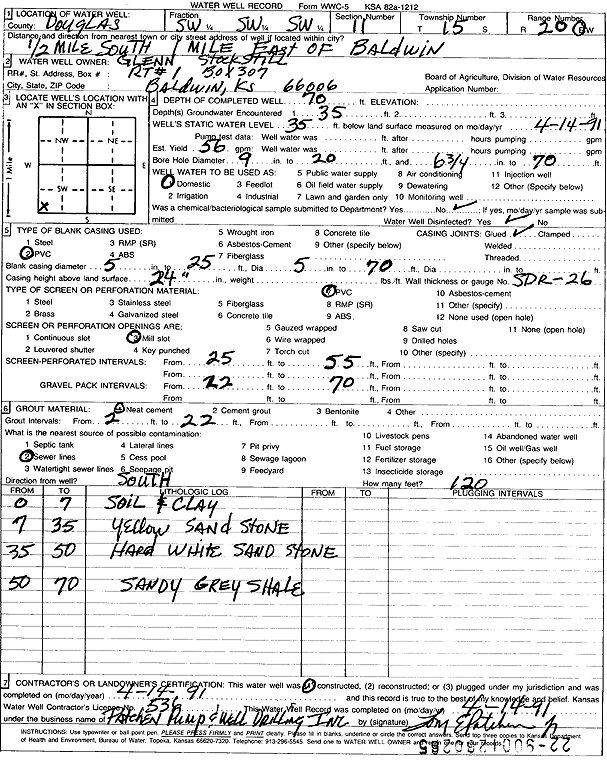 WATER WELL RECORD Form WWC-5 KSA 82a-1212
1 LOCATION OF WATER WELL: Fraction Section Number Township Number Range Number
County: DOUGLAS SW ¼ SW ¼ SW ¼ 11 T 15 S R 20 E/W
Distance and direction from nearest town or city street address of well if located within city?
1/2 MILE SOUTH 1 MILE EAST OF BALDWIN
2 WATER WELL OWNER: GLENN STOCKSTILL
RR#, St. Address, Box # : RT# 1 BOX 307 Board of Agriculture, Division of Water Resources
City, State, ZIP Code : BALDWIN, KS 66006 Application Number:
3 LOCATE WELL'S LOCATION WITH AN "X" IN SECTION BOX:
N
NW NE
W E
SW SE
X
S
1 Mile
4 DEPTH OF COMPLETED WELL 70 ft. ELEVATION:
Depth(s) Groundwater Encountered 1. 35 ft. 2. ft. 3. ft.
WELL'S STATIC WATER LEVEL 35 ft. below land surface measured on mo/day/yr 4-14-91
Pump test data: Well water was ft. after hours pumping gpm
Est. Yield 56 gpm: Well water was ft. after hours pumping gpm
Bore Hole Diameter 9 in. to 20 ft., and 6 3/4 in. to 70 ft.
WELL WATER TO BE USED AS: 5 Public water supply 8 Air conditioning 11 Injection well
1 Domestic 3 Feedlot 6 Oil field water supply 9 Dewatering 12 Other (Specify below)
2 Irrigation 4 Industrial 7 Lawn and garden only 10 Monitoring well
Was a chemical/bacteriological sample submitted to Department? Yes No ✓; If yes, mo/day/yr sample was submitted
Water Well Disinfected? Yes ✓ No
5 TYPE OF BLANK CASING USED: 5 Wrought iron 8 Concrete tile CASING JOINTS: Glued ✓ Clamped
1 Steel 3 RMP (SR) 6 Asbestos-Cement 9 Other (specify below) Welded
2 PVC 4 ABS 7 Fiberglass Threaded
Blank casing diameter 5 in. to 25 ft., Dia 5 in. to 70 ft., Dia in. to ft.
Casing height above land surface 24" in., weight lbs./ft. Wall thickness or gauge No. SDR-26
TYPE OF SCREEN OR PERFORATION MATERIAL: 7 PVC 10 Asbestos-cement
1 Steel 3 Stainless steel 5 Fiberglass 8 RMP (SR) 11 Other (specify)
2 Brass 4 Galvanized steel 6 Concrete tile 9 ABS 12 None used (open hole)
SCREEN OR PERFORATION OPENINGS ARE: 5 Gauzed wrapped 8 Saw cut 11 None (open hole)
1 Continuous slot 3 Mill slot 6 Wire wrapped 9 Drilled holes
2 Louvered shutter 4 Key punched 7 Torch cut 10 Other (specify)
SCREEN-PERFORATED INTERVALS: From 25 ft. to 55 ft., From ft. to ft.
From ft. to ft., From ft. to ft.
GRAVEL PACK INTERVALS: From 22 ft. to 70 ft., From ft. to ft.
From ft. to ft., From ft. to ft.
6 GROUT MATERIAL: 1 Neat cement 2 Cement grout 3 Bentonite 4 Other
Grout Intervals: From 2 ft. to 22 ft., From ft. to ft., From ft. to ft.
What is the nearest source of possible contamination: 10 Livestock pens 14 Abandoned water well
1 Septic tank 4 Lateral lines 7 Pit privy 11 Fuel storage 15 Oil well/Gas well
2 Sewer lines 5 Cess pool 8 Sewage lagoon 12 Fertilizer storage 16 Other (specify below)
3 Watertight sewer lines 6 Seepage pit 9 Feedyard 13 Insecticide storage
Direction from well? SOUTH How many feet? 120
FROM TO LITHOLOGIC LOG FROM TO PLUGGING INTERVALS
0 7 SOIL & CLAY
7 35 YELLOW SAND STONE
35 50 HARD WHITE SAND STONE
50 70 SANDY GREY SHALE
7 CONTRACTOR'S OR LANDOWNER'S CERTIFICATION: This water well was (1) constructed, (2) reconstructed, or (3) plugged under my jurisdiction and was
completed on (mo/day/year) 4-14-91 and this record is true to the best of my knowledge and belief. Kansas
Water Well Contractor's License No. 536 This Water Well Record was completed on (mo/day/yr) 4-14-91
under the business name of PATCHEN PUMP & WELL DRILLING INC by (signature)
INSTRUCTIONS: Use typewriter or ball point pen. PLEASE PRESS FIRMLY and PRINT clearly. Please fill in blanks, underline or circle the correct answers. Send top three copies to Kansas Department
of Health and Environment, Bureau of Water, Topeka, Kansas 66620-7320. Telephone: 913-296-5545. Send one to WATER WELL OWNER and retain one for your records.